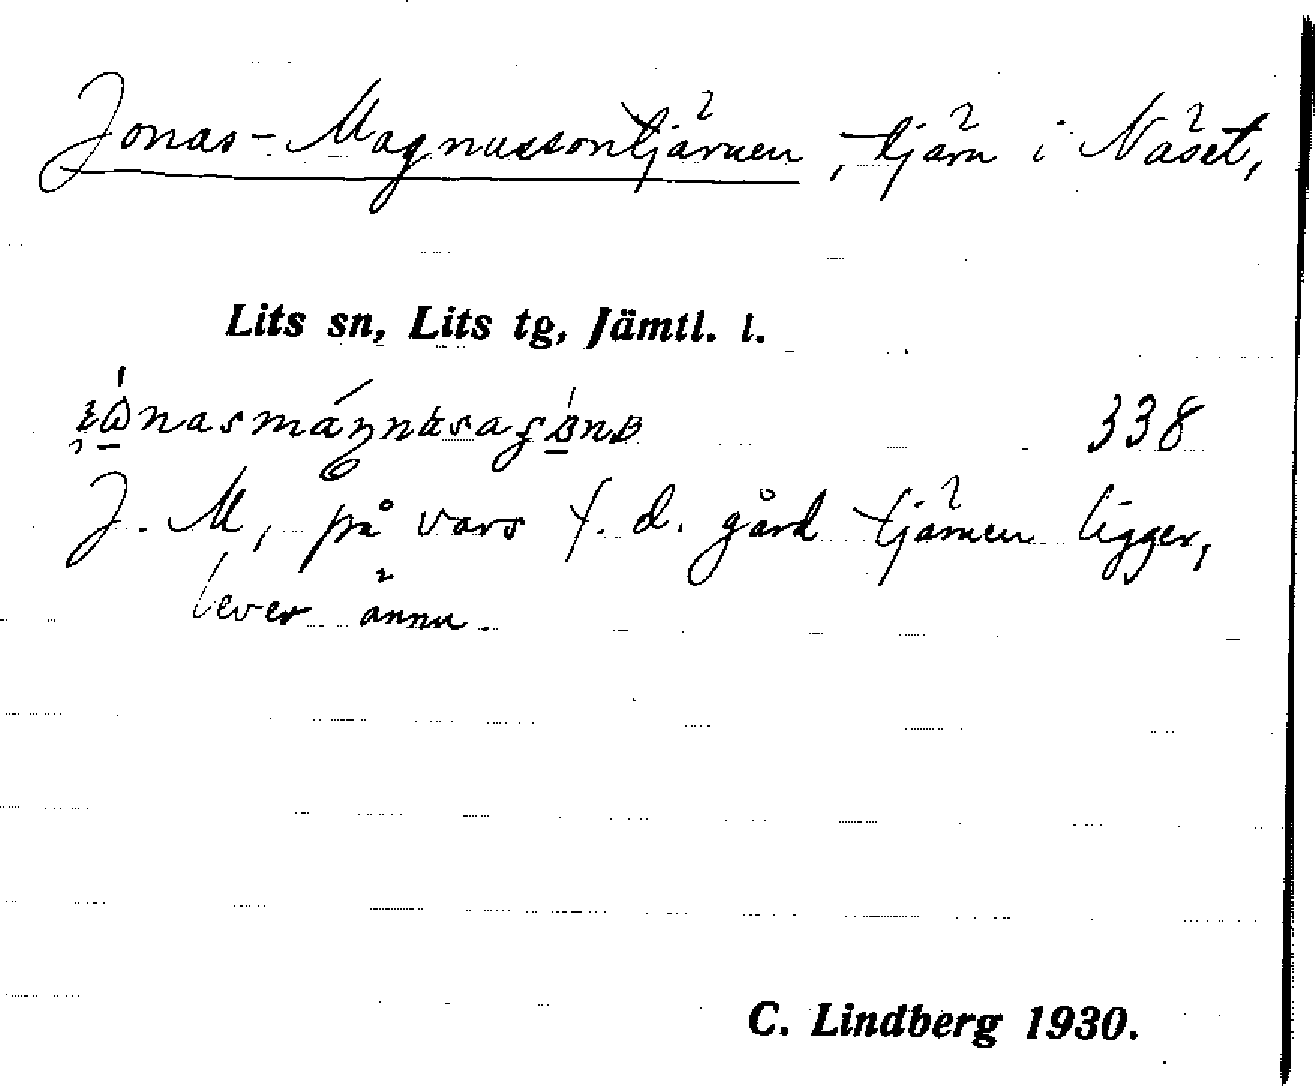 Jonas-Magnussontjärnen, tjärn i Näset,
Lits sn, Lits tg, Jämtl. l.
338
J. M, på vars f. d. gård tjärnen ligger,
lever ännu.
C. Lindberg 1930.